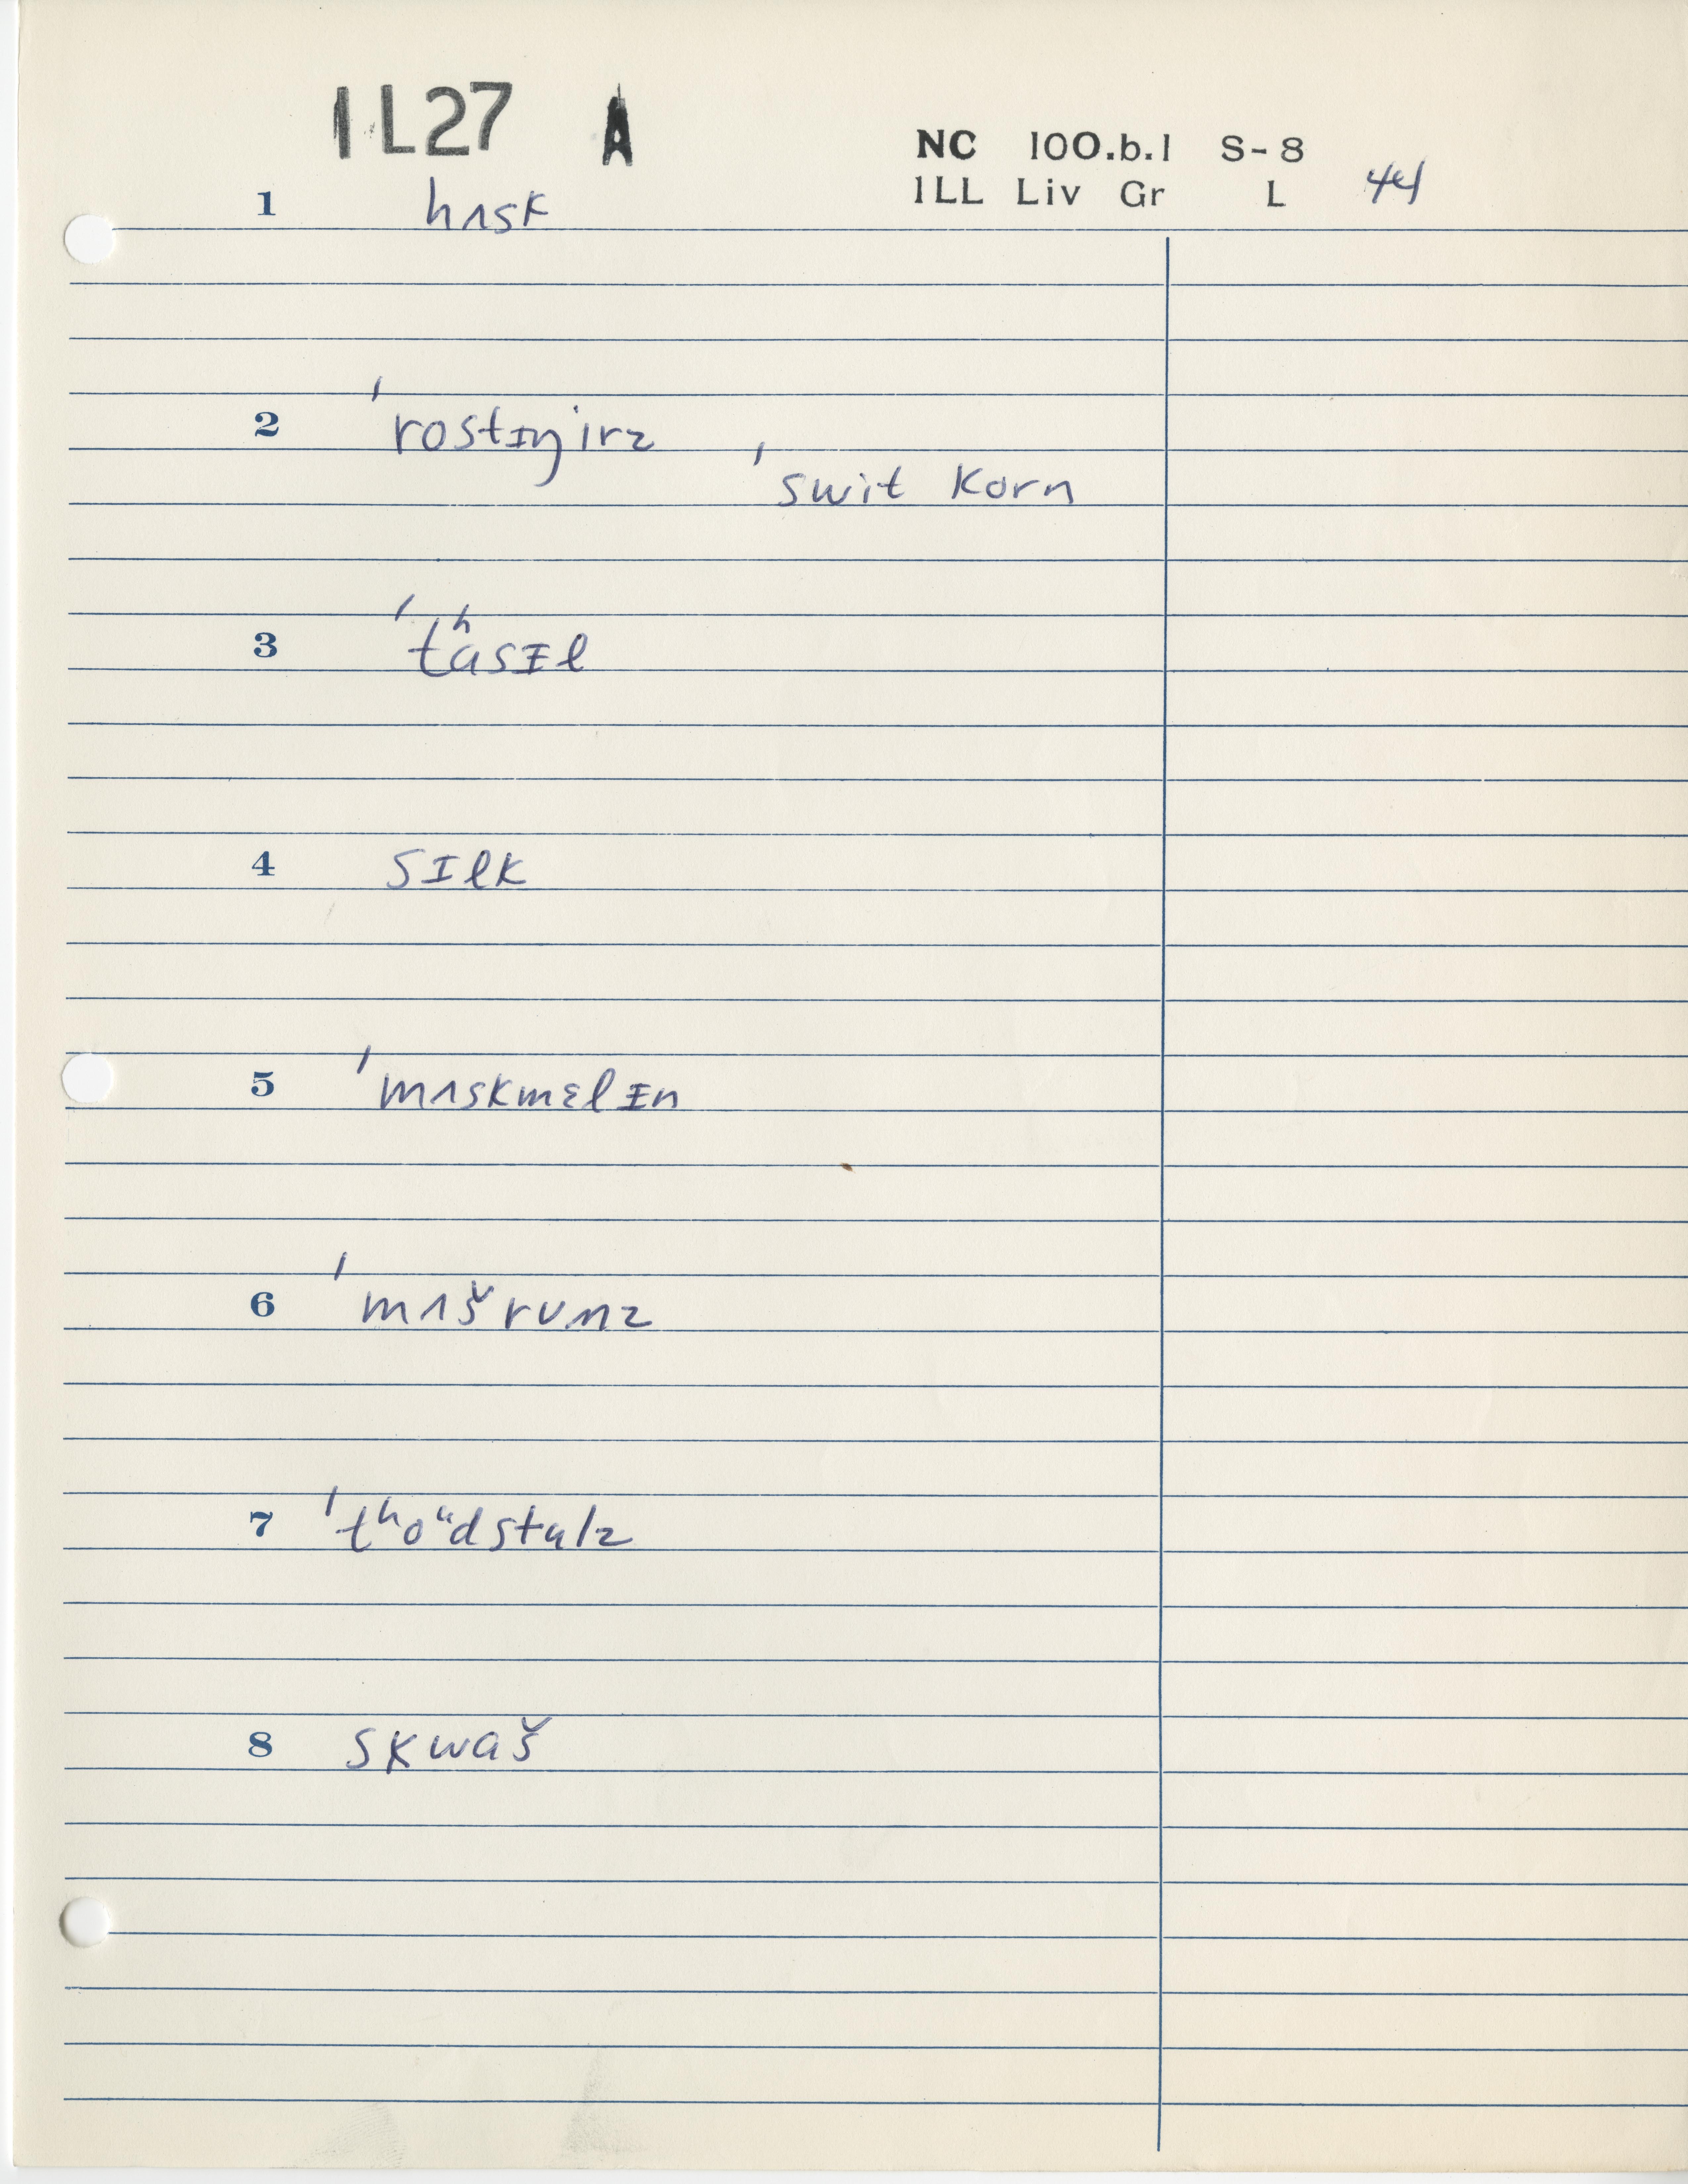 1L27 A
NC 100.b.1 S-8
1LL Liv Gr L 44
1 hʌsk
2 ˈrostɪŋirz
ˈswit korn
3 ˈtʰasɪl
4 sɪlk
5 ˈmʌskmɛlɪn
6 ˈmʌšrumz
7 ˈtʰoᵘdstulz
8 skwaš